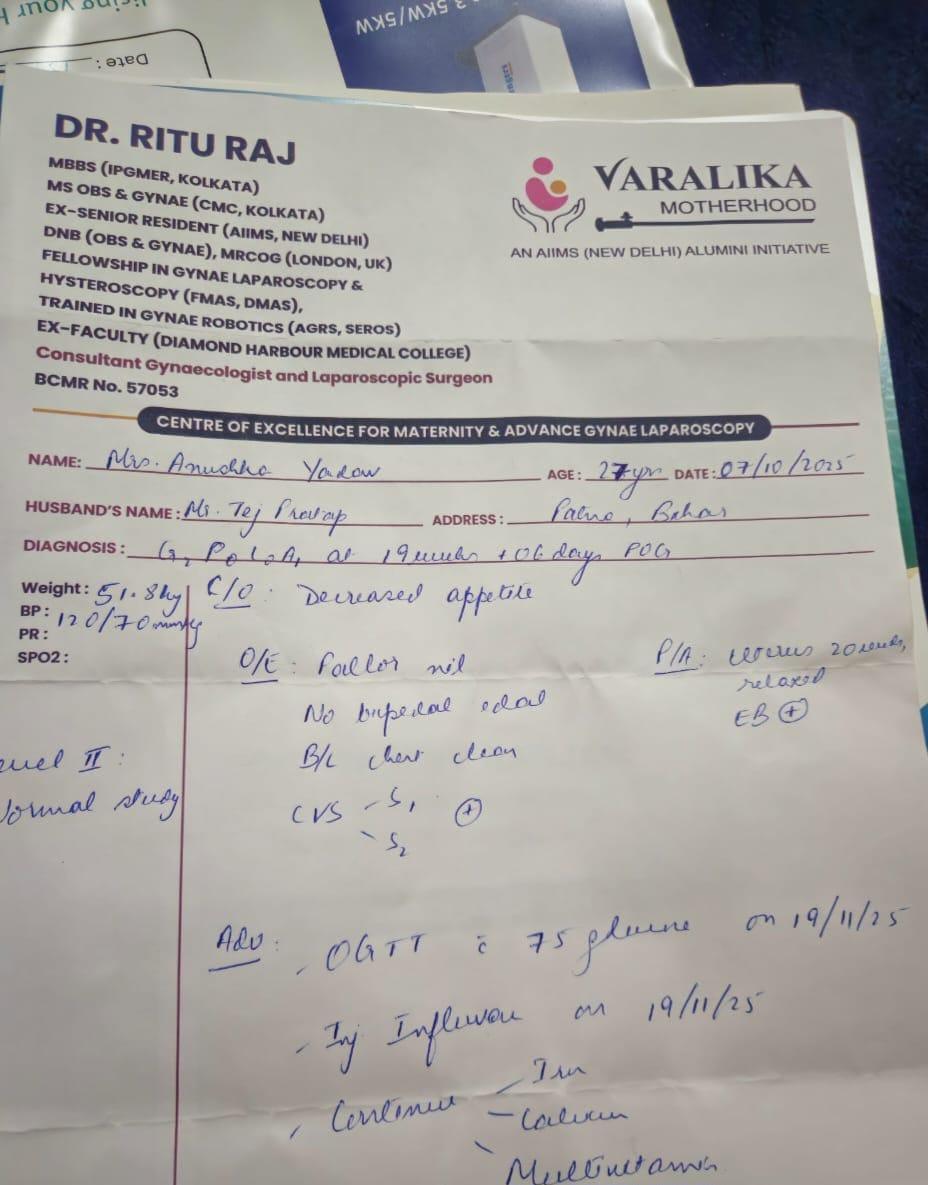 3.5KW/5KW
Date :
DR. RITU RAJ
MBBS (IPGMER, KOLKATA)
MS OBS & GYNAE (CMC, KOLKATA)
EX-SENIOR RESIDENT (AIIMS, NEW DELHI)
DNB (OBS & GYNAE), MRCOG (LONDON, UK)
FELLOWSHIP IN GYNAE LAPAROSCOPY &
HYSTEROSCOPY (FMAS, DMAS),
TRAINED IN GYNAE ROBOTICS (AGRS, SEROS)
EX-FACULTY (DIAMOND HARBOUR MEDICAL COLLEGE)
Consultant Gynaecologist and Laparoscopic Surgeon
BCMR No. 57053
VARALIKA
MOTHERHOOD
AN AIIMS (NEW DELHI) ALUMINI INITIATIVE
CENTRE OF EXCELLENCE FOR MATERNITY & ADVANCE GYNAE LAPAROSCOPY
NAME: Mrs. Yadav AGE: 27yrs DATE: 07/10/2025
HUSBAND'S NAME: Mr. Tej Pratap ADDRESS: Patna, Bihar
DIAGNOSIS: G2 P0 L0 A1 at 19 weeks + 06 days POG
Weight: 51.8kg C/O: Decreased appetite
BP: 120/70 mmHg
PR:
SPO2:
O/E: Pallor nil P/A: uterus 20 weeks,
relaxed
No bipedal edema EB (+)
B/L chest clear
II:
Normal study
CVS - S1 (+)
S2
Adv: OGTT c̄ 75 glucose on 19/11/25
Inj on 19/11/25
Continue - Iron
- Calcium
Multivitamin